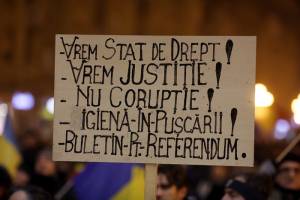 -VREM STAT DE DREPT!
-VREM JUSTIȚIE!
- NU CORUPȚIE!
- IGIENĂ-ÎN-PUȘCĂRII!
-BULETIN-PT-REFERENDUM.